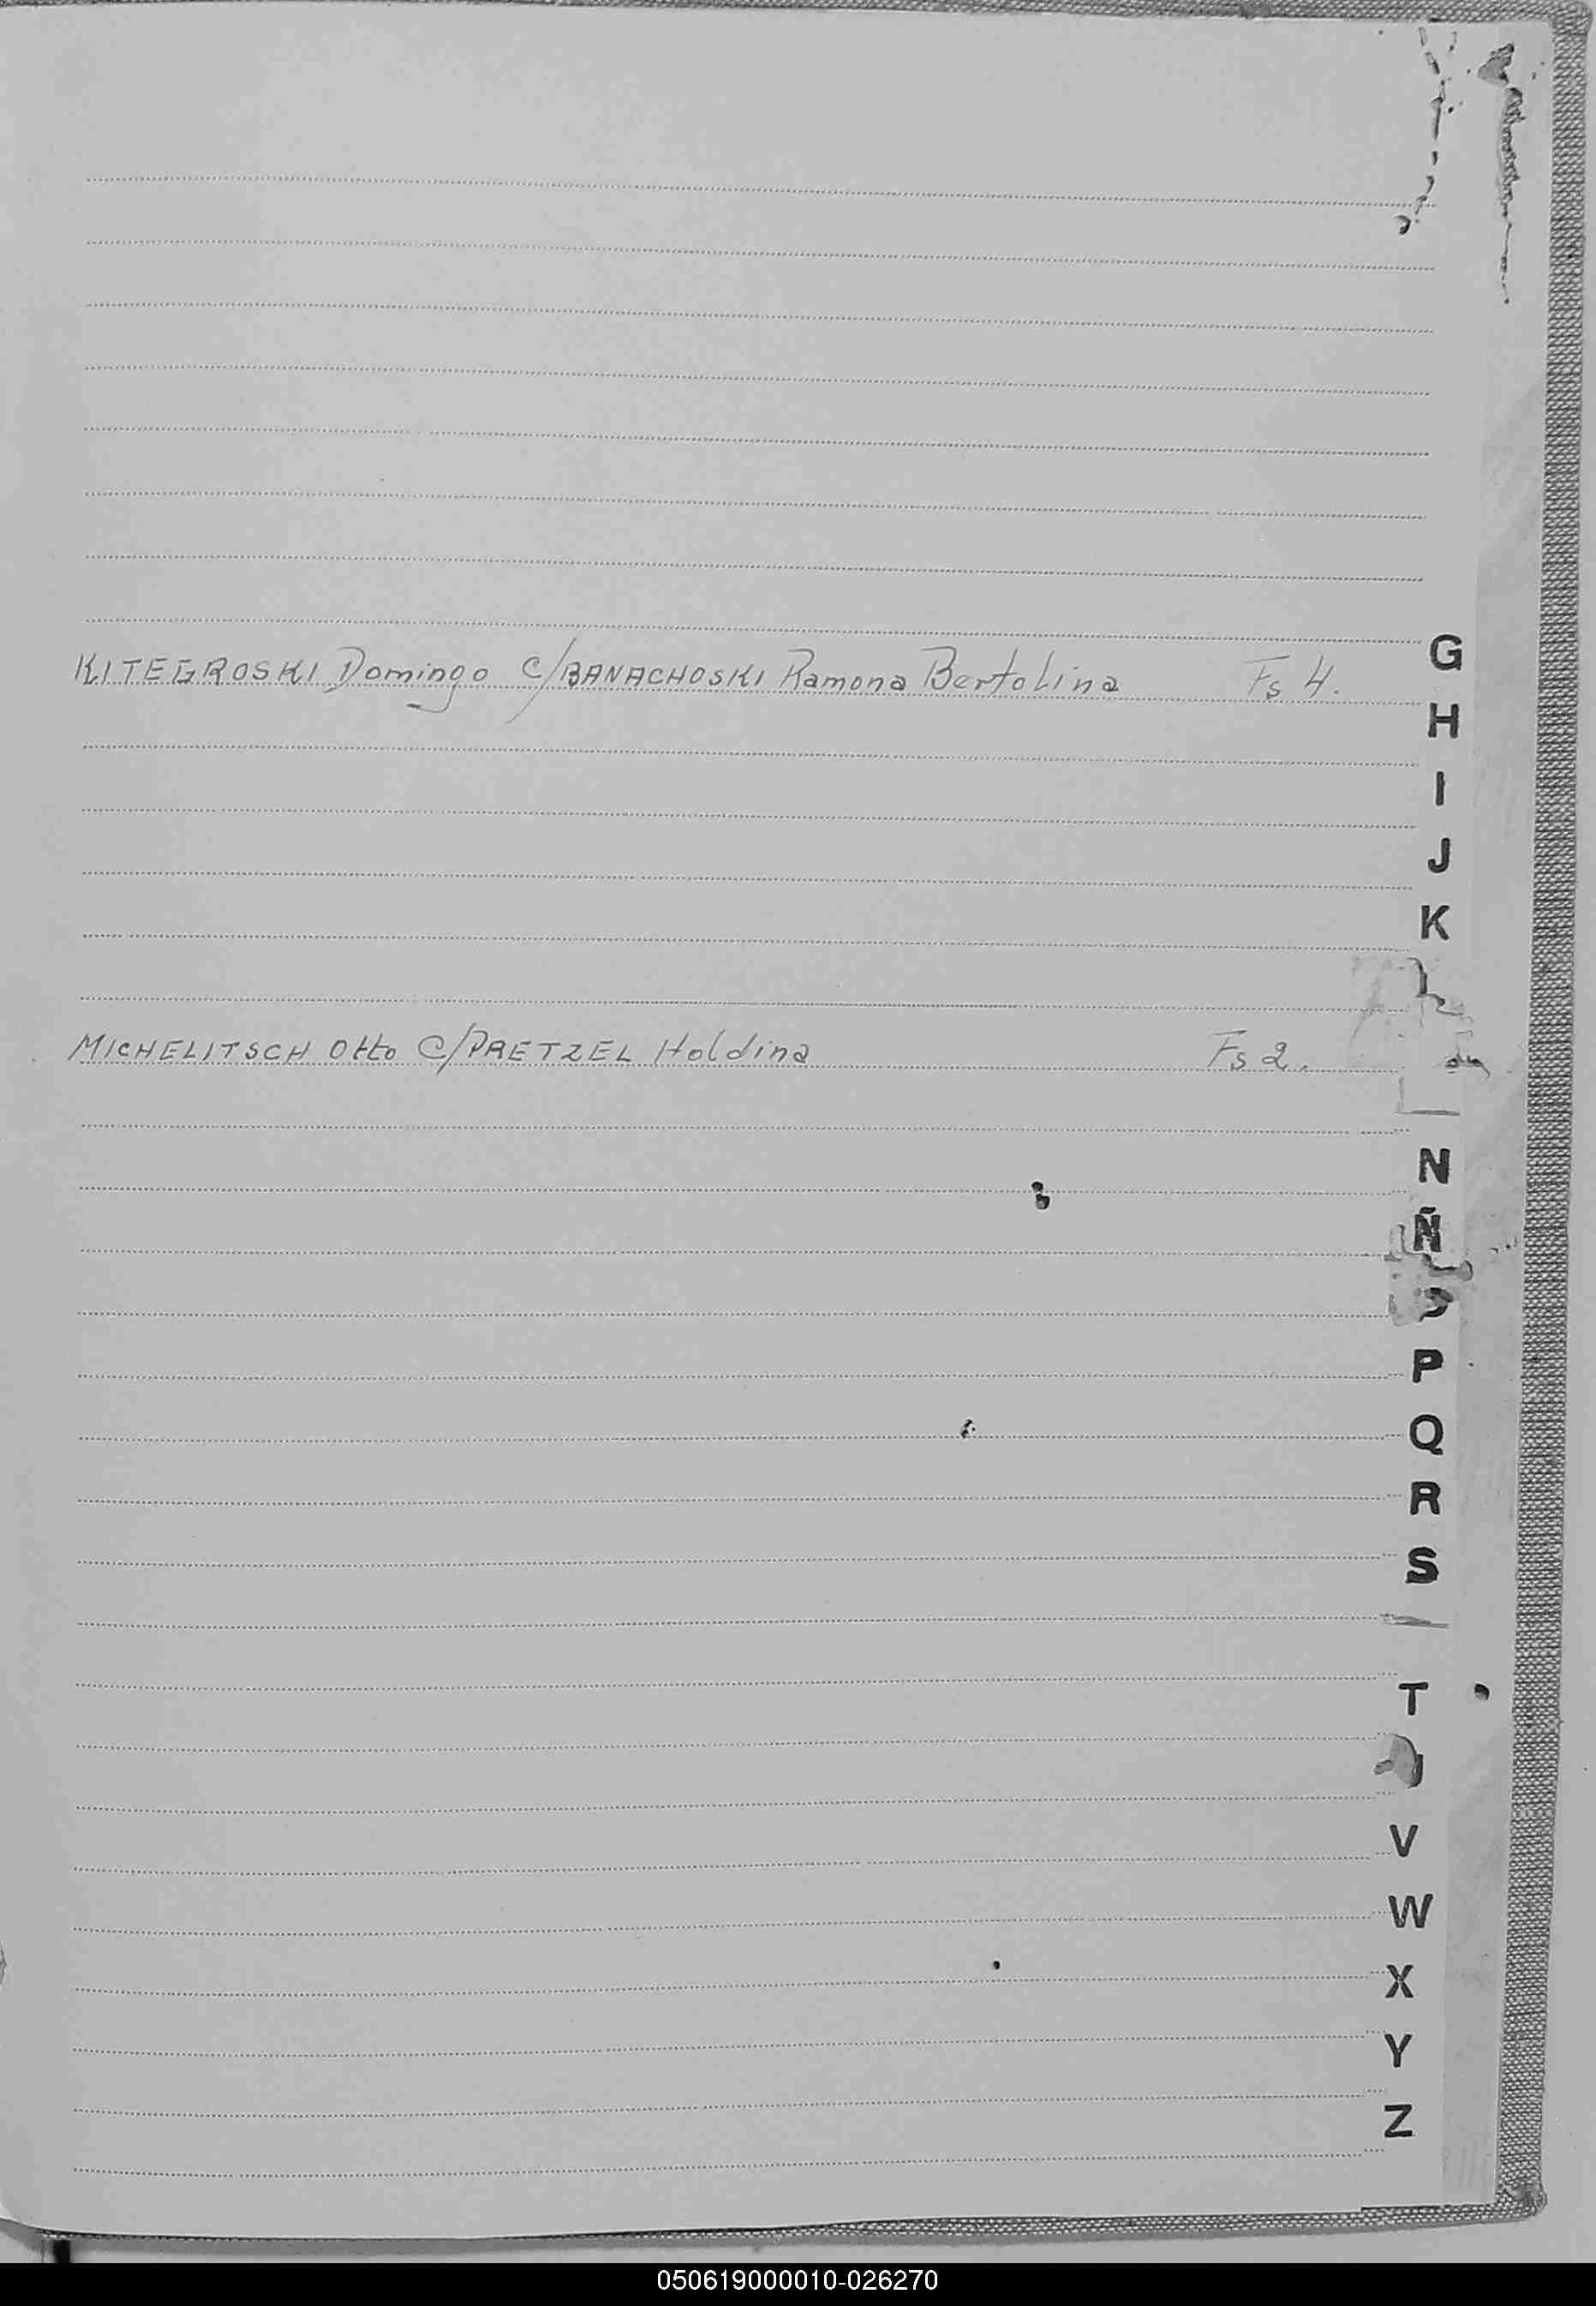 G
KITEGROSKI Domingo C/BANACHOSKI Ramona Bertolina Fs 4.
H
I
J
K
MICHELITSCH Otto C/PRETZEL Holdina Fs 2.
N
Ñ
P
Q
R
S
T
V
W
X
Y
Z
050619000010-026270